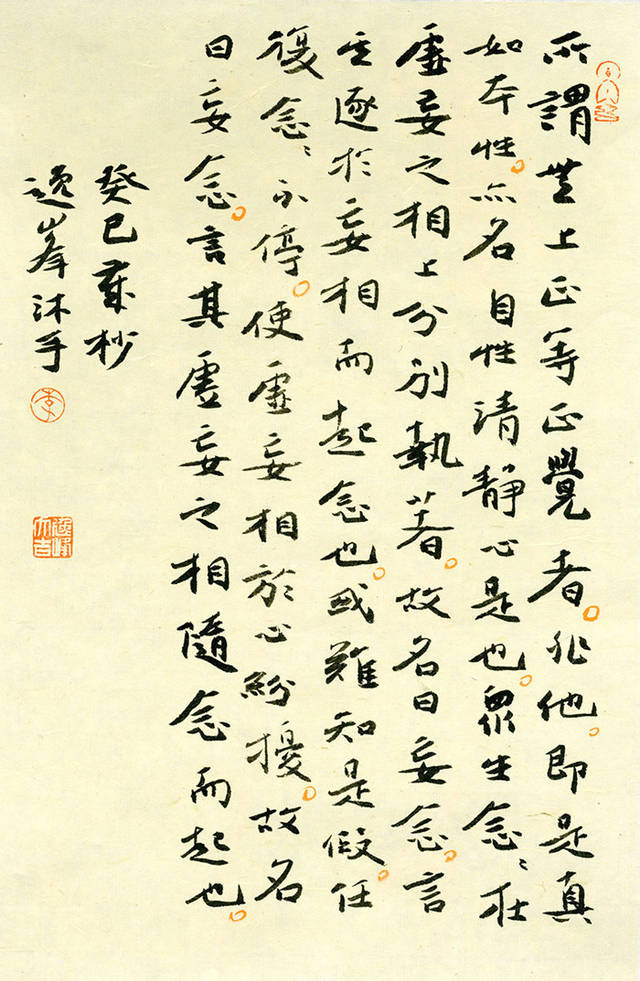 所謂無上正等正覺者。非他。即是真
如本性。亦名自性清静心是也。眾生念〻在
虛妄之相上分別執著。故名曰妄念。言
其逐於妄相而起念也。或難知是假任
復念〻不停。使虛妄相於心紛擾。故名
曰妄念。言其虛妄之相隨念而起也。
癸巳歲杪
逸峯沐手
李
逸峰大吉